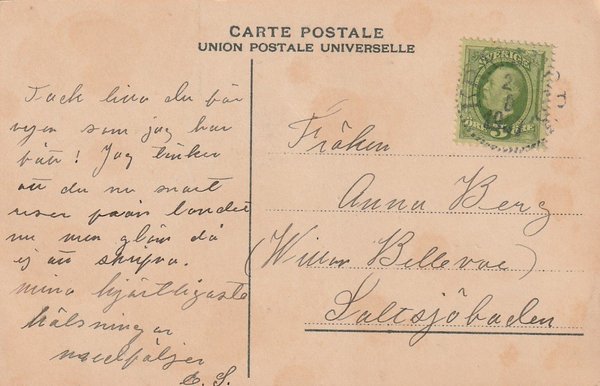 CARTE POSTALE
UNION POSTALE UNIVERSELLE
Tack lina du för
som jag har
fått! Jag tänker
att du nu snart
reser från landet
nu men glöm då
ej att skrifva.
mina hjärtligaste
hälsningar
medföljer
E. S.
SVERIGE
5
Fröken
Anna Berg
(Willan Bellevue)
Saltsjöbaden